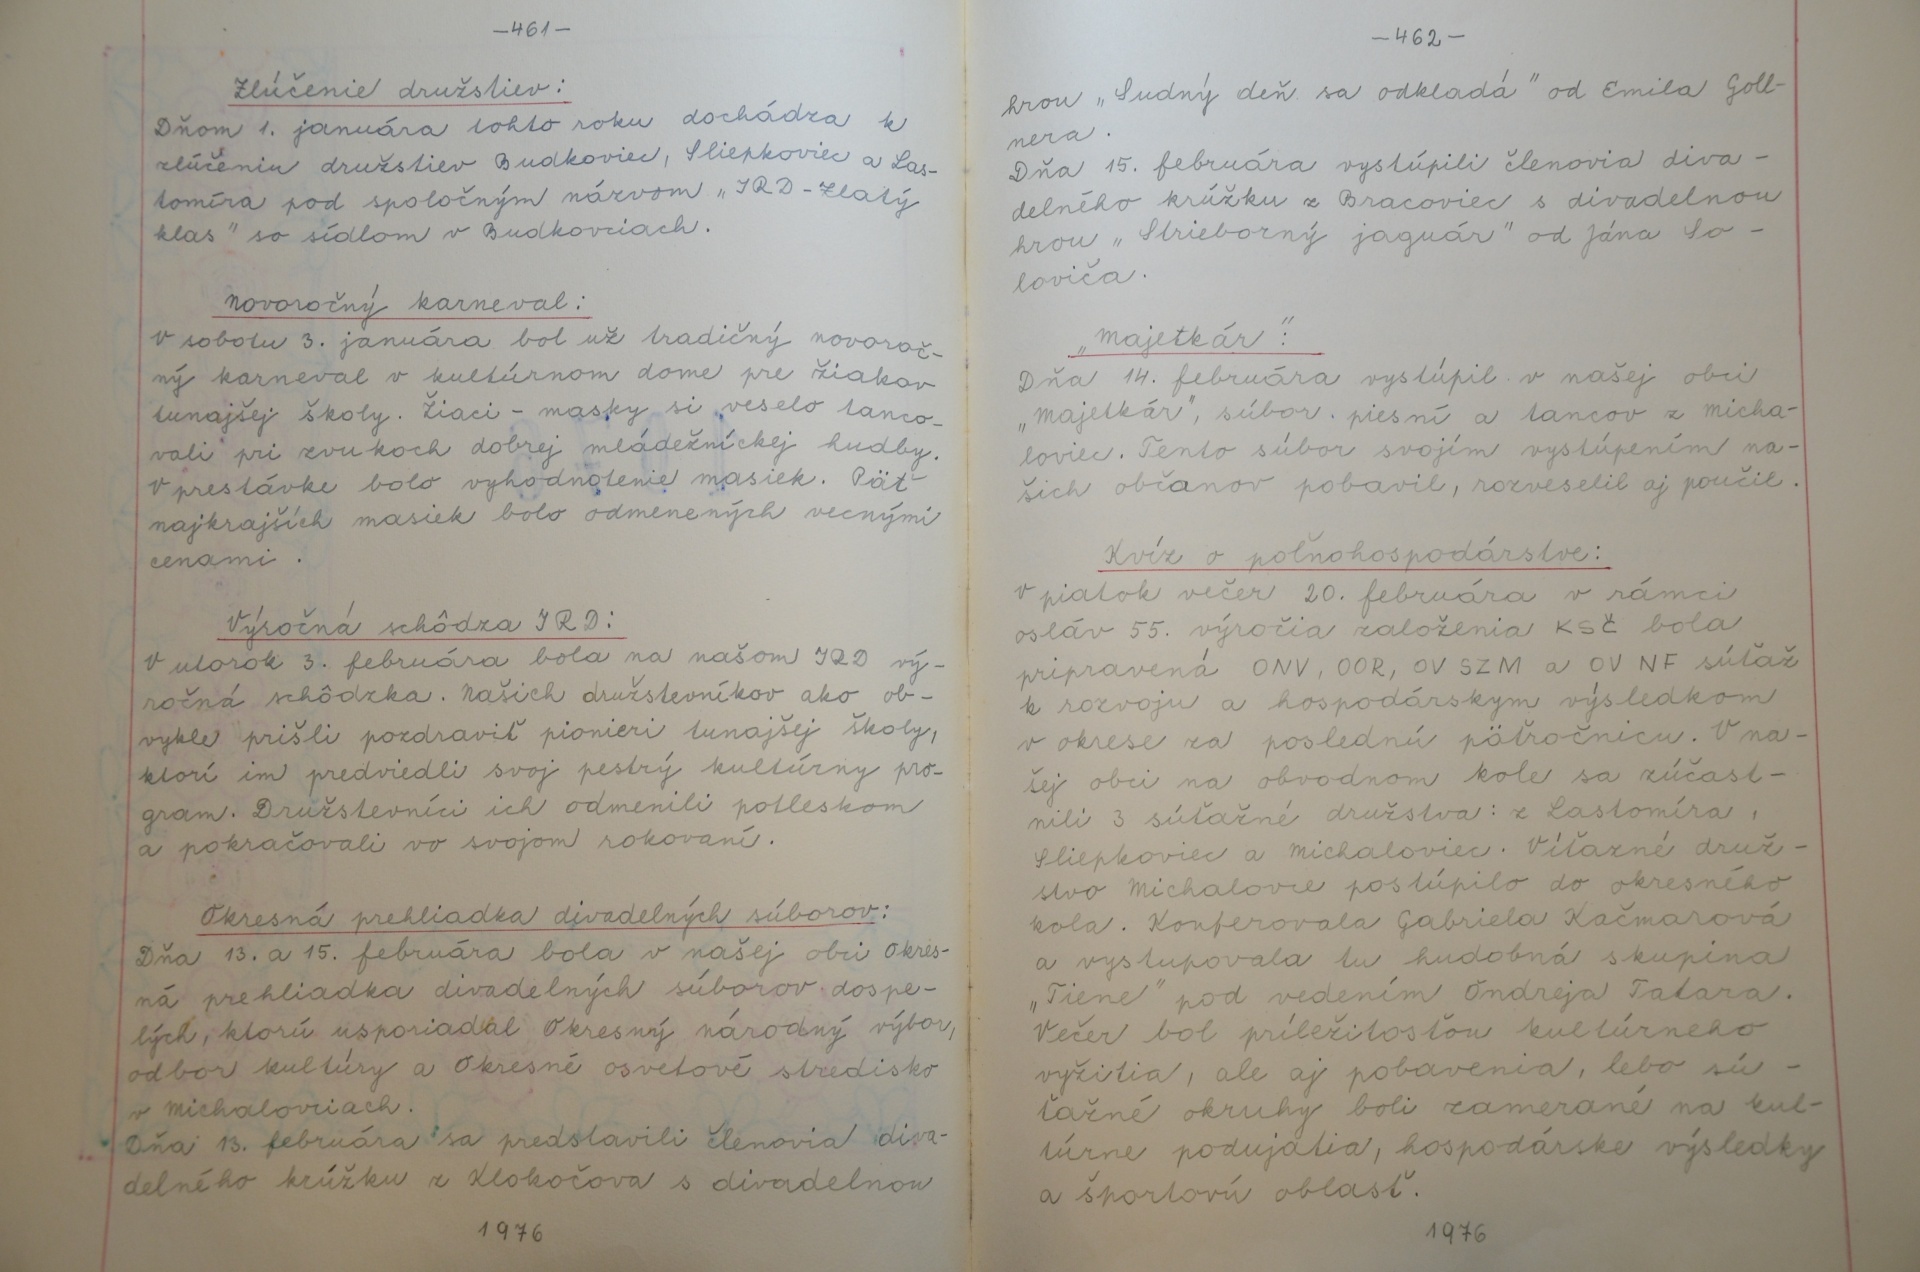 -461-
Zlúčenie družstiev:
Dňom 1. januára tohto roku dochádza k
zlúčeniu družstiev Budkoviec, Sliepkoviec a Las-
tomíra pod spoločným názvom „JRD-Zlatý
klas" so sídlom v Budkovciach.
Novoročný karneval:
V sobotu 3. januára bol už tradičný novoroč-
ný karneval v kultúrnom dome pre žiakov
tunajšej školy. Žiaci - masky si veselo tanco-
vali pri zvukoch dobrej mládežníckej hudby.
V prestávke bolo vyhodnotenie masiek. Päť
najkrajších masiek bolo odmenených vecnými
cenami.
Výročná schôdza JRD:
V utorok 3. februára bola na našom JRD vý-
ročná schôdzka. Našich družstevníkov ako ob-
vykle prišli pozdraviť pionieri tunajšej školy,
ktorí im predviedli svoj pestrý kultúrny pro-
gram. Družstevníci ich odmenili potleskom
a pokračovali vo svojom rokovaní.
Okresná prehliadka divadelných súborov:
Dňa 13. a 15. februára bola v našej obci Okres-
ná prehliadka divadelných súborov dospe-
lých, ktorú usporiadal Okresný národný výbor,
odbor kultúry a Okresné osvetové stredisko
v Michalovciach.
Dňa 13. februára sa predstavili členovia diva-
delného krúžku z Klokočova s divadelnou
1976
-462-
hrou „Sudný deň sa odkladá" od Emila Goll-
nera.
Dňa 15. februára vystúpili členovia diva-
delného krúžku z Bracoviec s divadelnou
hrou „Strieborný jaguár" od Jána So-
loviča.
„Majetkár":
Dňa 14. februára vystúpil v našej obci
„Majetkár", súbor piesní a tancov z Micha-
loviec. Tento súbor svojím vystúpením na-
šich občanov pobavil, rozveselil aj poučil.
Kvíz o poľnohospodárstve:
V piatok večer 20. februára v rámci
osláv 55. výročia založenia KSČ bola
pripravená ONV, OOR, OV SZM a OV NF súťaž
k rozvoju a hospodárskym výsledkom
v okrese za poslednú päťročnicu. V na-
šej obci na obvodnom kole sa zúčast-
nili 3 súťažné družstva: z Lastomíra,
Sliepkoviec a Michaloviec. Víťazné druž-
stvo Michalovce postúpilo do okresného
kola. Konferovala Gabriela Kačmarová
a vystupovala tu hudobná skupina
„Tiene" pod vedením Ondreja Tatara.
Večer bol príležitosťou kultúrneho
vyžitia, ale aj pobavenia, lebo sú-
ťažné okruhy boli zamerané na kul-
túrne podujatia, hospodárske výsledky
a športovú oblasť.
1976